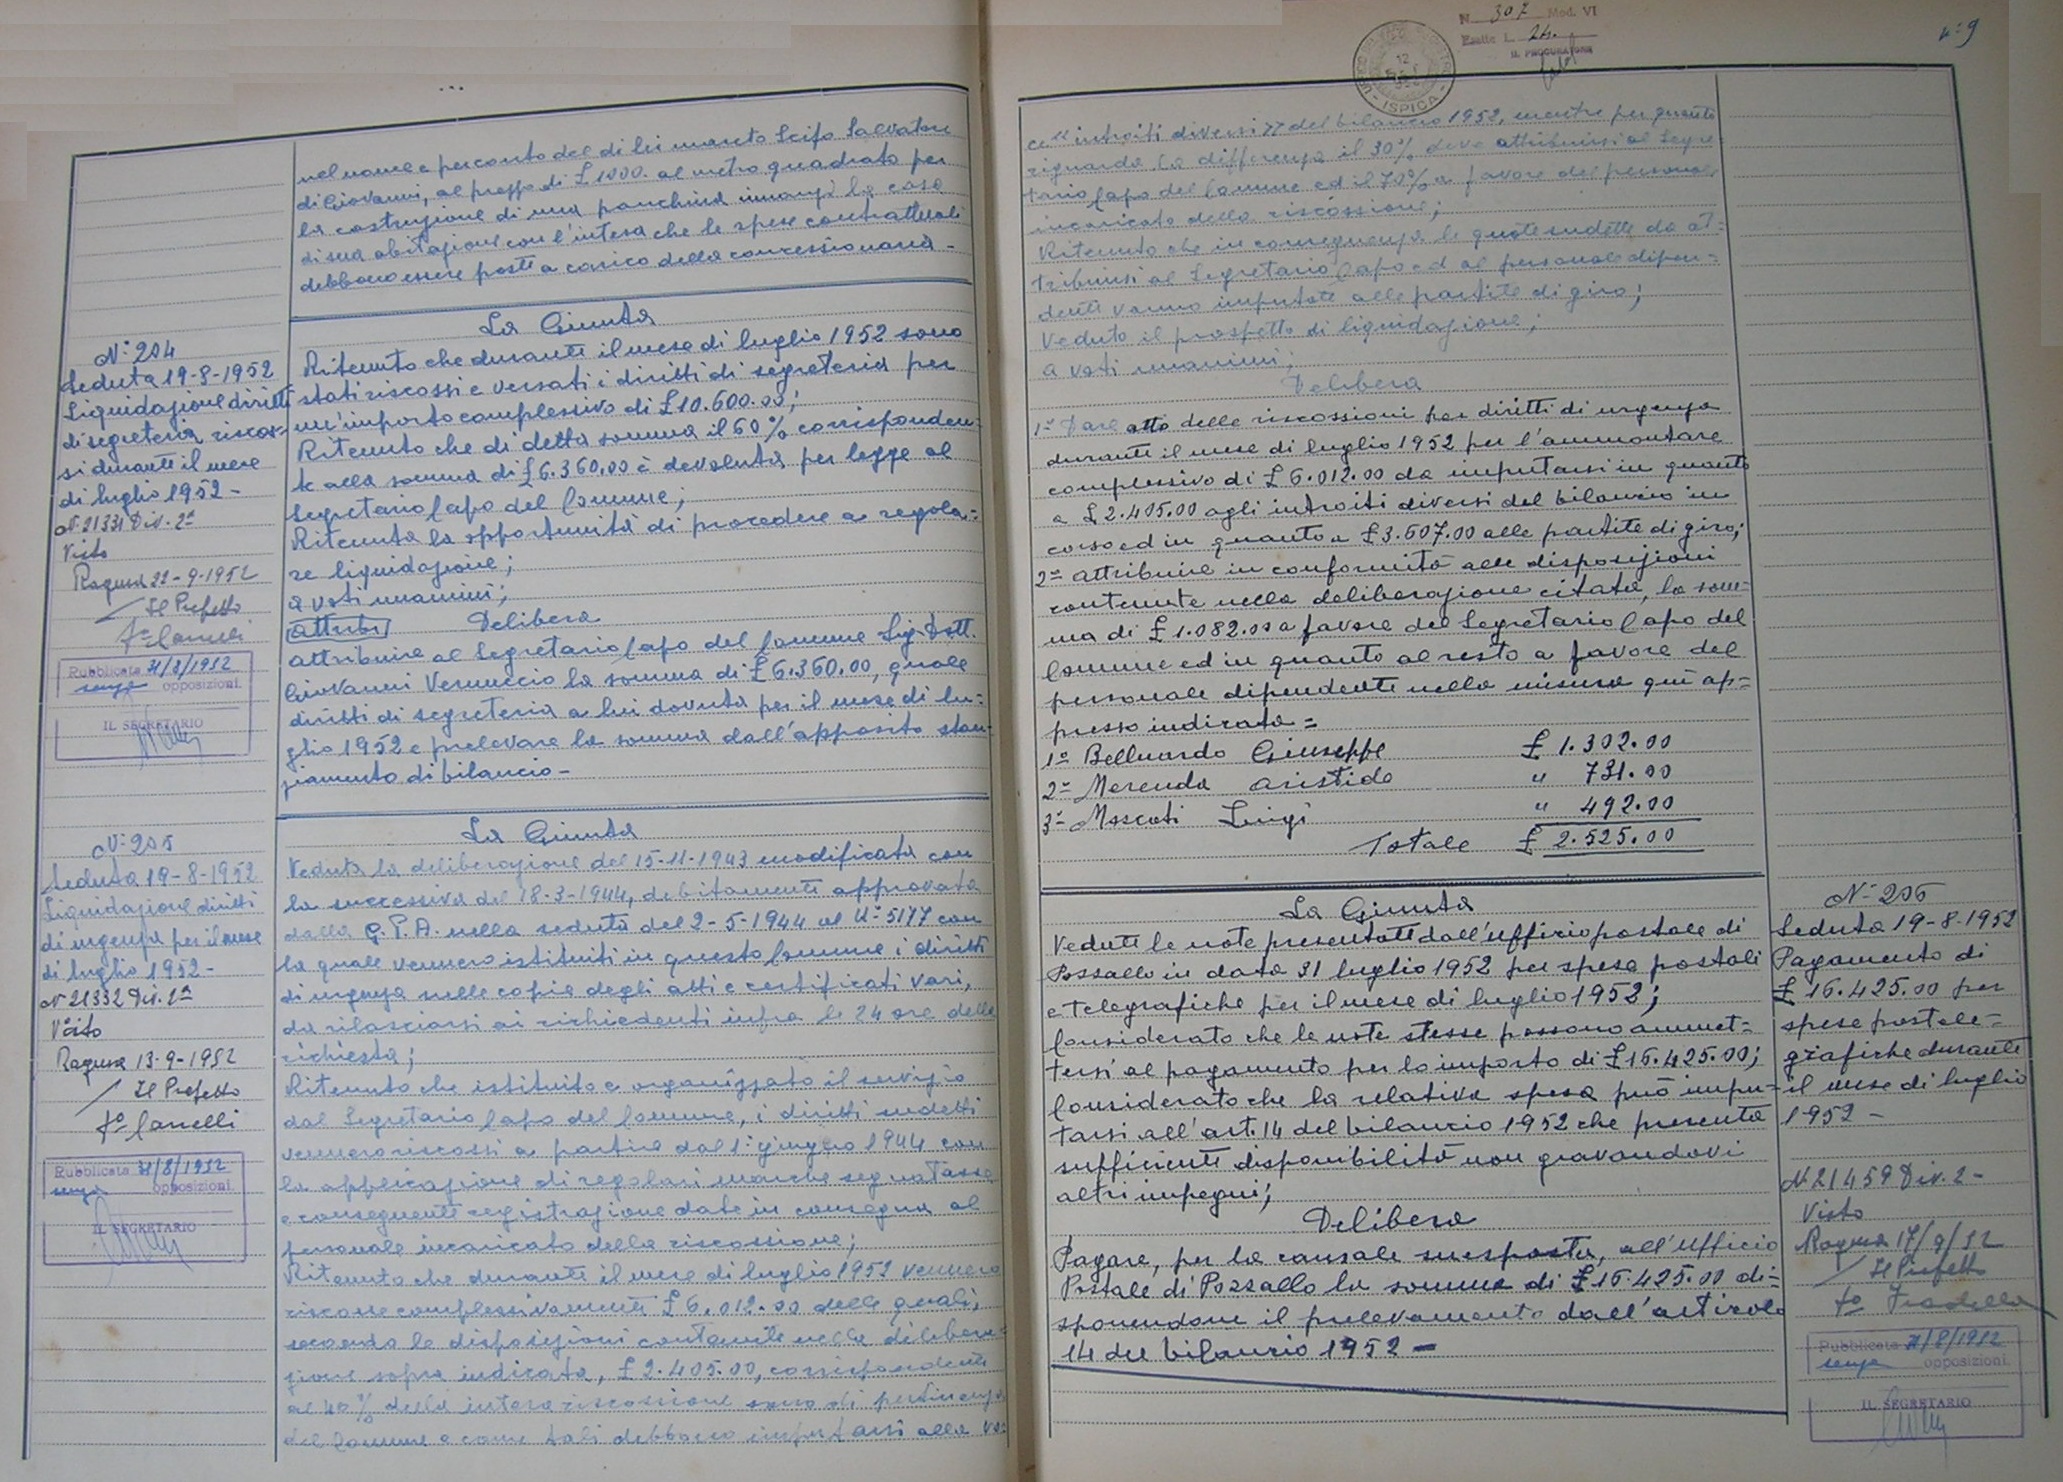 nel nome e per conto del di lei marito Scifo Salvatore
di Giovanni, al prezzo di £ 1000. al metro quadrato per
la costruzione di una panchina innanzi la casa
di sua abitazione con l'intesa che le spese contrattuali
debbono essere poste a carico della concessionaria -
N° 204
Seduta 19-8-1952
Liquidazione diritti
di segreteria riscos-
si durante il mese
di luglio 1952 -
N. 21331 Div. 2ª
Visto
Ragusa 22-9-1952
Il Prefetto
Pubblicata 31/8/1952
senza opposizioni.
IL SEGRETARIO
La Giunta
Ritenuto che durante il mese di luglio 1952 sono
stati riscossi e versati i diritti di segreteria per
un'importo complessivo di £ 10.600.00;
Ritenuto che di detta somma il 60% corrisponden-
te alla somma di £ 6.360.00 è devoluta per legge al
Segretario Capo del Comune;
Ritenuta la opportunità di procedere a regola=
re liquidazione;
a voti unanimi;
attribi Delibera
attribuire al Segretario Capo del Comune Sig. Dott.
Giovanni Vernuccio la somma di £ 6.360.00, quale
diritti di segreteria a lui dovuta per il mese di lu=
glio 1952 e prelevare la somma dall'apposito stan-
ziamento di bilancio -
N° 205
Seduta 19-8-1952
Liquidazione diritti
di urgenza per il mese
di luglio 1952 -
N° 21332 Div. 2ª
Visto
Ragusa 13-9-1952
Il Prefetto
Pubblicata 31/8/1952
senza opposizioni.
IL SEGRETARIO
La Giunta
Veduta la deliberazione del 15-11-1943 modificata con
la successiva del 18-3-1944, debitamente approvata
dalla G.P.A. nella seduta del 2-5-1944 al N° 5177 con
la quale vennero istituiti in questo Comune i diritti
di urgenza nelle copie degli atti e certificati vari,
da rilasciarsi ai richiedenti infra le 24 ore della
richiesta;
Ritenuto che istituito e organizzato il servizio
dal Segretario Capo del Comune, i diritti sudetti
vennero riscossi a partire dal 1° giugno 1944 con
la applicazione di regolari marche segnatasse
e conseguente registrazione date in consegna al
personale incaricato della riscossione;
Ritenuto che durante il mese di luglio 1952 vennero
riscosse complessivamente £ 6.012.00 delle quali,
secondo le disposizioni contenute nella delibera-
zione sopra indicata, £ 2.405.00, corrispondente
al 40% della intera riscossione sono di pertinenza
del Comune e come tali debbono imputarsi alla vo-
N. 307 Mod. VI
Esatte L. 24.
IL PROCURATORE
ISPICA
ce "introiti diversi" del bilancio 1952, mentre per quanto
riguarda la differenza il 30% deve attribuirsi al Segre-
tario Capo del Comune ed il 70% a favore del personale
incaricato della riscossione;
Ritenuto che in conseguenza le quote sudette da at=
tribuirsi al Segretario Capo ed al personale dipen=
dente vanno imputate alle partite di giro;
Veduto il prospetto di liquidazione;
a voti unanimi;
Delibera
1°= Dare atto delle riscossioni per diritti di urgenza
durante il mese di luglio 1952 per l'ammontare
complessivo di £ 6.012.00 da imputarsi in quanto
a £ 2.405.00 agli introiti diversi del bilancio in
corso ed in quanto a £ 3.607.00 alle partite di giro;
2°= attribuire in conformità alle disposizioni
contenute nella deliberazione citata, la som=
ma di £ 1.082.00 a favore del Segretario Capo del
Comune ed in quanto al resto a favore del
personale dipendente nella misura qui ap=
presso indicata =
1°= Belluardo Giuseppe £ 1.302.00
2°= Merenda Aristide " 731.00
3°= Moscati Luigi " 492.00
Totale £ 2.525.00
La Giunta
Vedute le note presentate dall'ufficio postale di
Pozzallo in data 31 luglio 1952 per spese postali
e telegrafiche per il mese di luglio 1952;
Considerato che le note stesse possono ammet=
tersi al pagamento per lo importo di £ 16.425.00;
Considerato che la relativa spesa può impu=
tarsi all'art. 14 del bilancio 1952 che presenta
sufficiente disponibilità non gravandovi
altri impegni;
Delibera
Pagare, per la causale suesposta, all'Ufficio
Postale di Pozzallo la somma di £ 16.425.00 di=
sponendone il prelevamento dall'articolo
14 del bilancio 1952 -
N° 206
Seduta 19-8-1952
Pagamento di
£ 16.425.00 per
spese postele=
grafiche durante
il mese di luglio
1952 -
N. 21459 Div. 2-
Visto
Ragusa 17/9/52
Il Prefetto
Pubblicata 31/8/1952
senza opposizioni.
IL SEGRETARIO